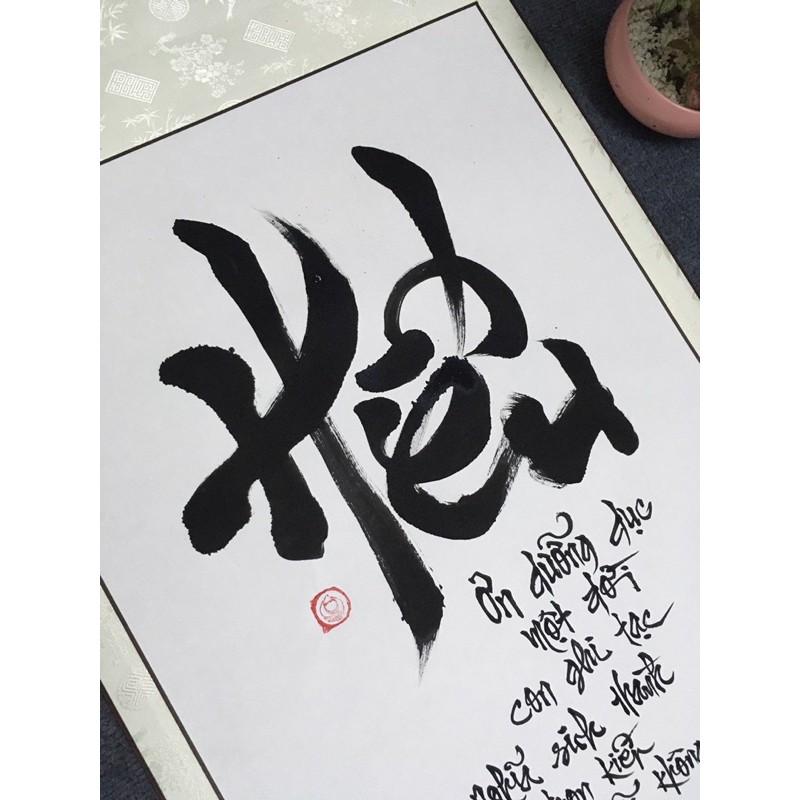 Hiếu
Ơn dưỡng dục
một đời
con ghi tạc
nghĩa sinh thành
vạn kiếp
không